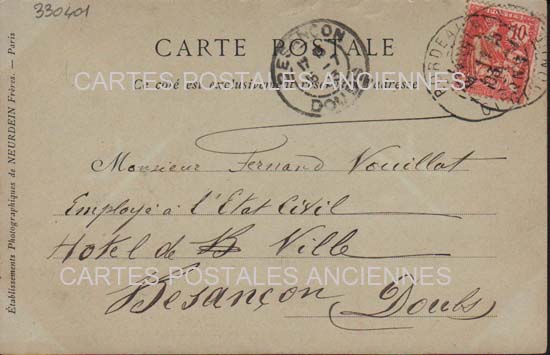 330401
CARTE POSTALE
Ce côté est exclusivement réservé à l'adresse
CARTES POSTALES ANCIENNES
BESANÇON
DOUBS
BORDEAUX
GIRONDE
10
Monsieur Fernand Vouillot
Employé à l'Etat Civil
Hotel de Ville
CARTES POSTALES ANCIENNES
Besançon Doubs
Établissements Photographiques de NEURDEIN Frères. — Paris